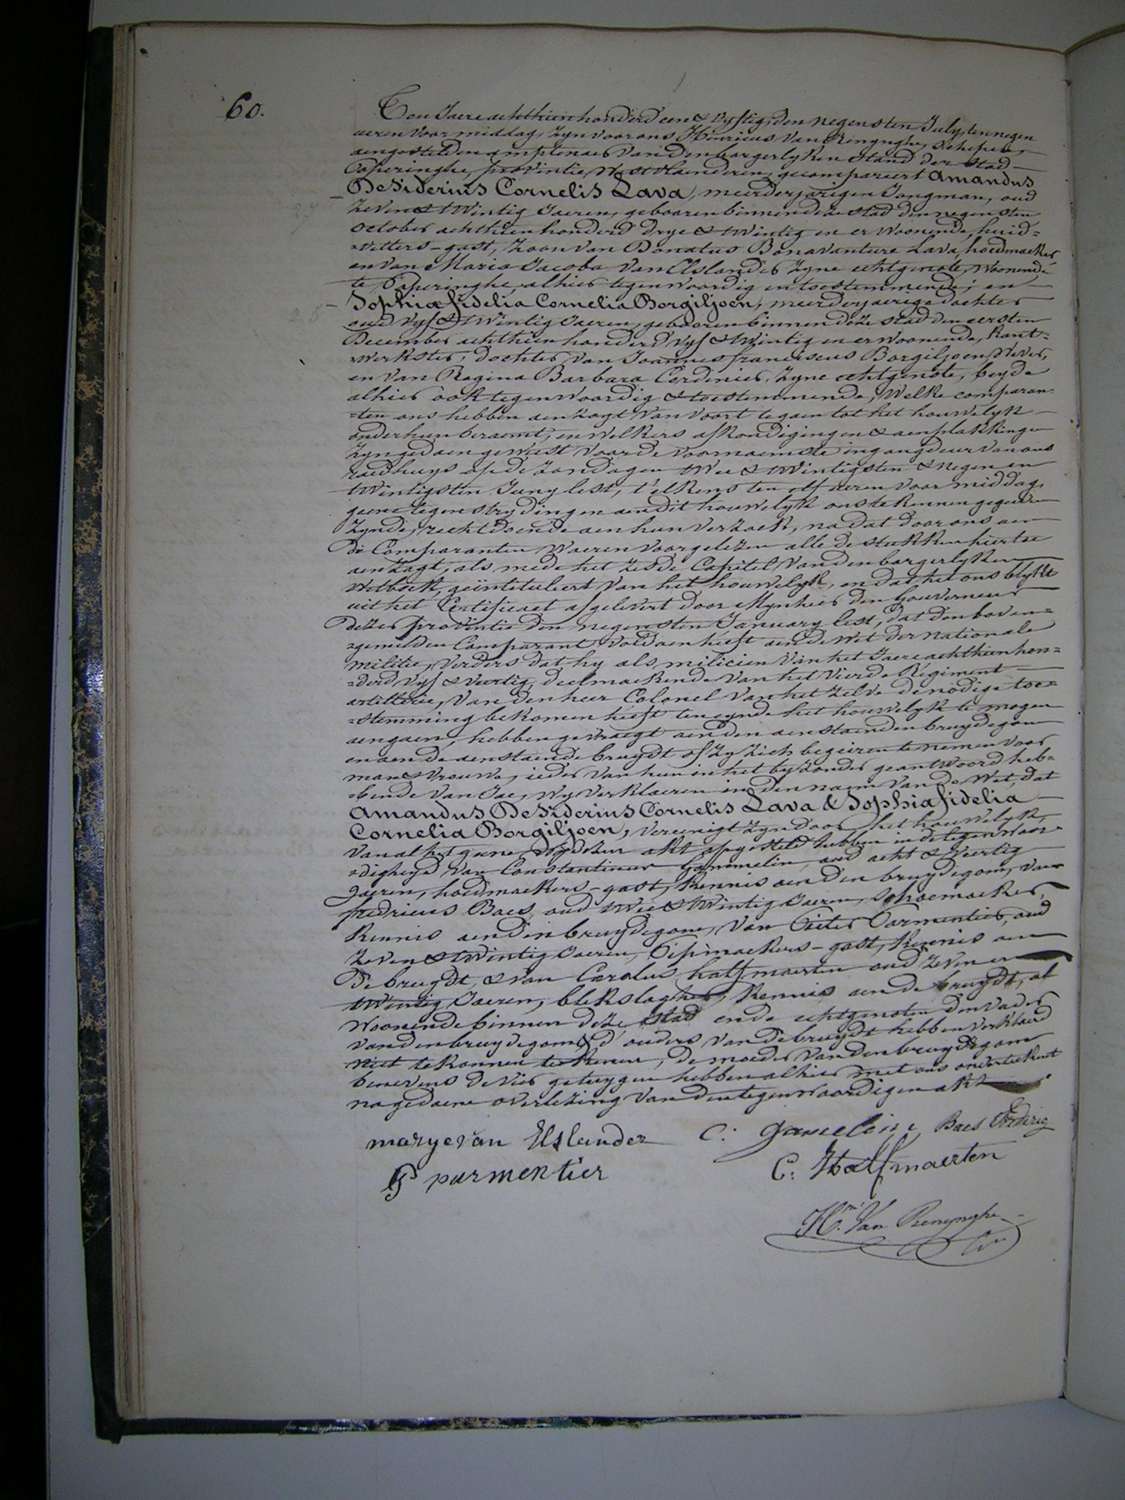 60.
Ten Jaere achthien honderd een & vyftig, den negensten July, ten negen
ueren voor middag, zyn voor ons Henricus Van Renynghe, schepen,
aengestelden amptenaer van den borgerlyken stand der stad
Poperinghe, provintie, Westvlaenderen, gecompareert Amandus
Desiderius Cornelis Lava, meerderjarigen Jongman, oud
zeven & twintig Jaeren, gebooren binnen deze stad den negensten
october achthien honderd drye & twintig en er woonende, huid=
=vetters-gast, zoon van Donatus Bonaventure Lava, hoedmaeker
en van Maria Jacoba Van Elslander zyne echtgenote, woonende
te Poperinghe, alhier tegenwoordig en toestemmende; en
Sophia fidelia Cornelia Borgiljoen, meerderjaerige dochter
oud vyf & twintig Jaeren, gebooren binnen deze stad den eersten
December achthien honderd vyf & twintig en er woonende, kant=
=werkster, dochter van Joannes franciscus Borgiljoen, wever,
en van Regina Barbara Cordenier, zyne echtgenote, beyde
alhier ook tegenwoordig & toestemmende, Welke comparan=
=ten ons hebben aenzogt van voort te gaen tot het houwelyk
onder hun beraemt, en welkers afkondigingen & aenplakkingen
zyn gedaen geweest voor de voornaemste ingangdeur van ons
raedhuys op de zondagen twee & twintigsten & negen en
twintigsten Juny lest, t'elkens ten elf ueren voor middag,
geene tegenstrydingen aen dit houwelyk ons te kennen gegeven
zynde, recht doende aen hun verzoek, na dat door ons aen
de Comparanten waeren voorgelezen alle de stukken hier toe
aenzogt, als mede het zesde Capitel van den borgerlyken
Wetboek, geïntituleert van het houwelyk, en dat het ons blykt
uit het Certificaet afgelevert door Mynheer den Gouverneur
dezer provintie den negensten January lest, dat den boven=
=gemelden Comparant voldaen heeft aen de Wet der nationale
militie, verders dat hy als milicien van het Jaer achthien hon=
=derd vyf & veertig, deelmaekende van het vierde Régiment
artillerie, van den heer Colonel van het zelve de nodige toe=
=stemming bekomen heeft ten eynde het houwelyk te mogen
aengaen, hebben gevraegt aen den aenstaenden bruydegom
en aen de aenstaende bruydt of zy zich begeeren te nemen voor
man & vrouwe, ieder van hun en het byzonder geantwoord heb=
=bende van Jae, wy verklaeren in den naem van de Wet, dat
Amandus Desiderius Cornelis Lava & Sophia fidelia
Cornelia Borgiljoen, vereenigt zyn door het houwelyk,
van al het gene wy dezen akt opgesteld hebben in de tegenwoor=
=digheyd van Constantinus Gamelin, oud acht & veertig
Jaeren, hoedmaekers-gast, kennis aen den bruydegom, van
fredricus Baes, oud twee & twintig Jaeren, schoenmaeker,
kennis aen den bruydegom, van Pieter Parmentier, oud
zeven & twintig Jaeren, pipmaekers-gast, kennis aen
de bruydt, & van Carolus halfmaerten oud zeven en
twintig Jaeren, blekslager, kennis aen de bruydt, al
woonende binnen deze stad ende echtgenoten den vader
van den bruydegom & d'ouders van de bruydt hebben verklaerd
niet te konnen tekenen, de moeder van den bruydegom
benevens de vier getuygen hebben alhier met ons onderteekent
na gedaene overlezing van den tegenwoordigen akt
marye van Elslander C: gameleine Baes Fréderic
P parmentier C: Halfmaerten
Hri. Van Renynghe